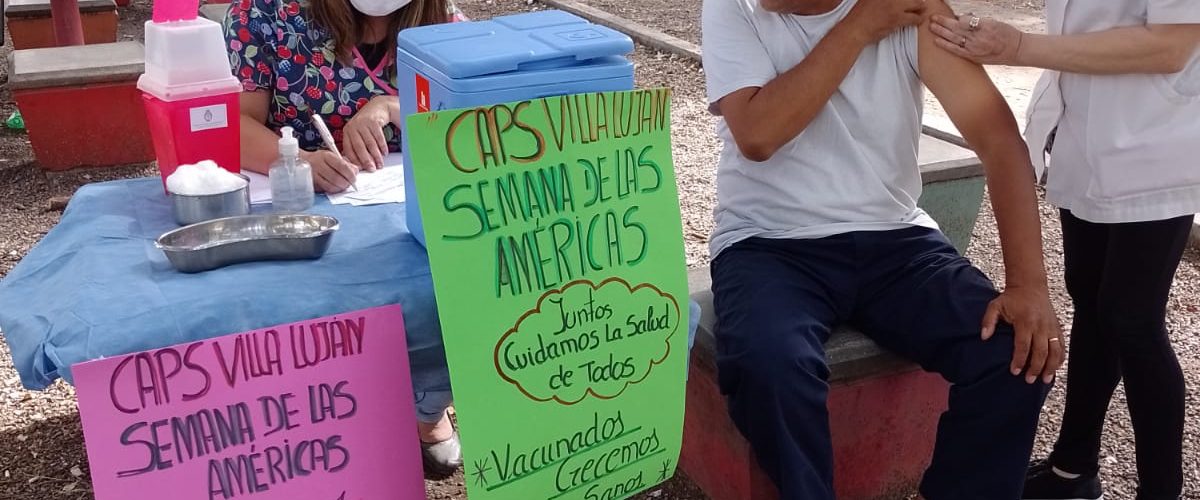 CAPS VILLA LUJÁN
SEMANA DE LAS
AMÉRICAS
CAPS VILLA LUJÁN
SEMANA DE LAS
AMÉRICAS
Juntos
Cuidamos La Salud
de Todos
*Vacunados
Crecemos
Sanos*